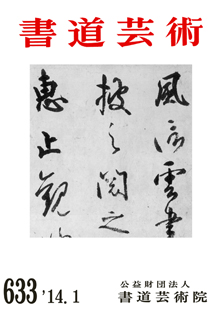 書道芸術
風信雲書
披之閲之
恵止観
633 '14.1
公益財団法人
書道芸術院